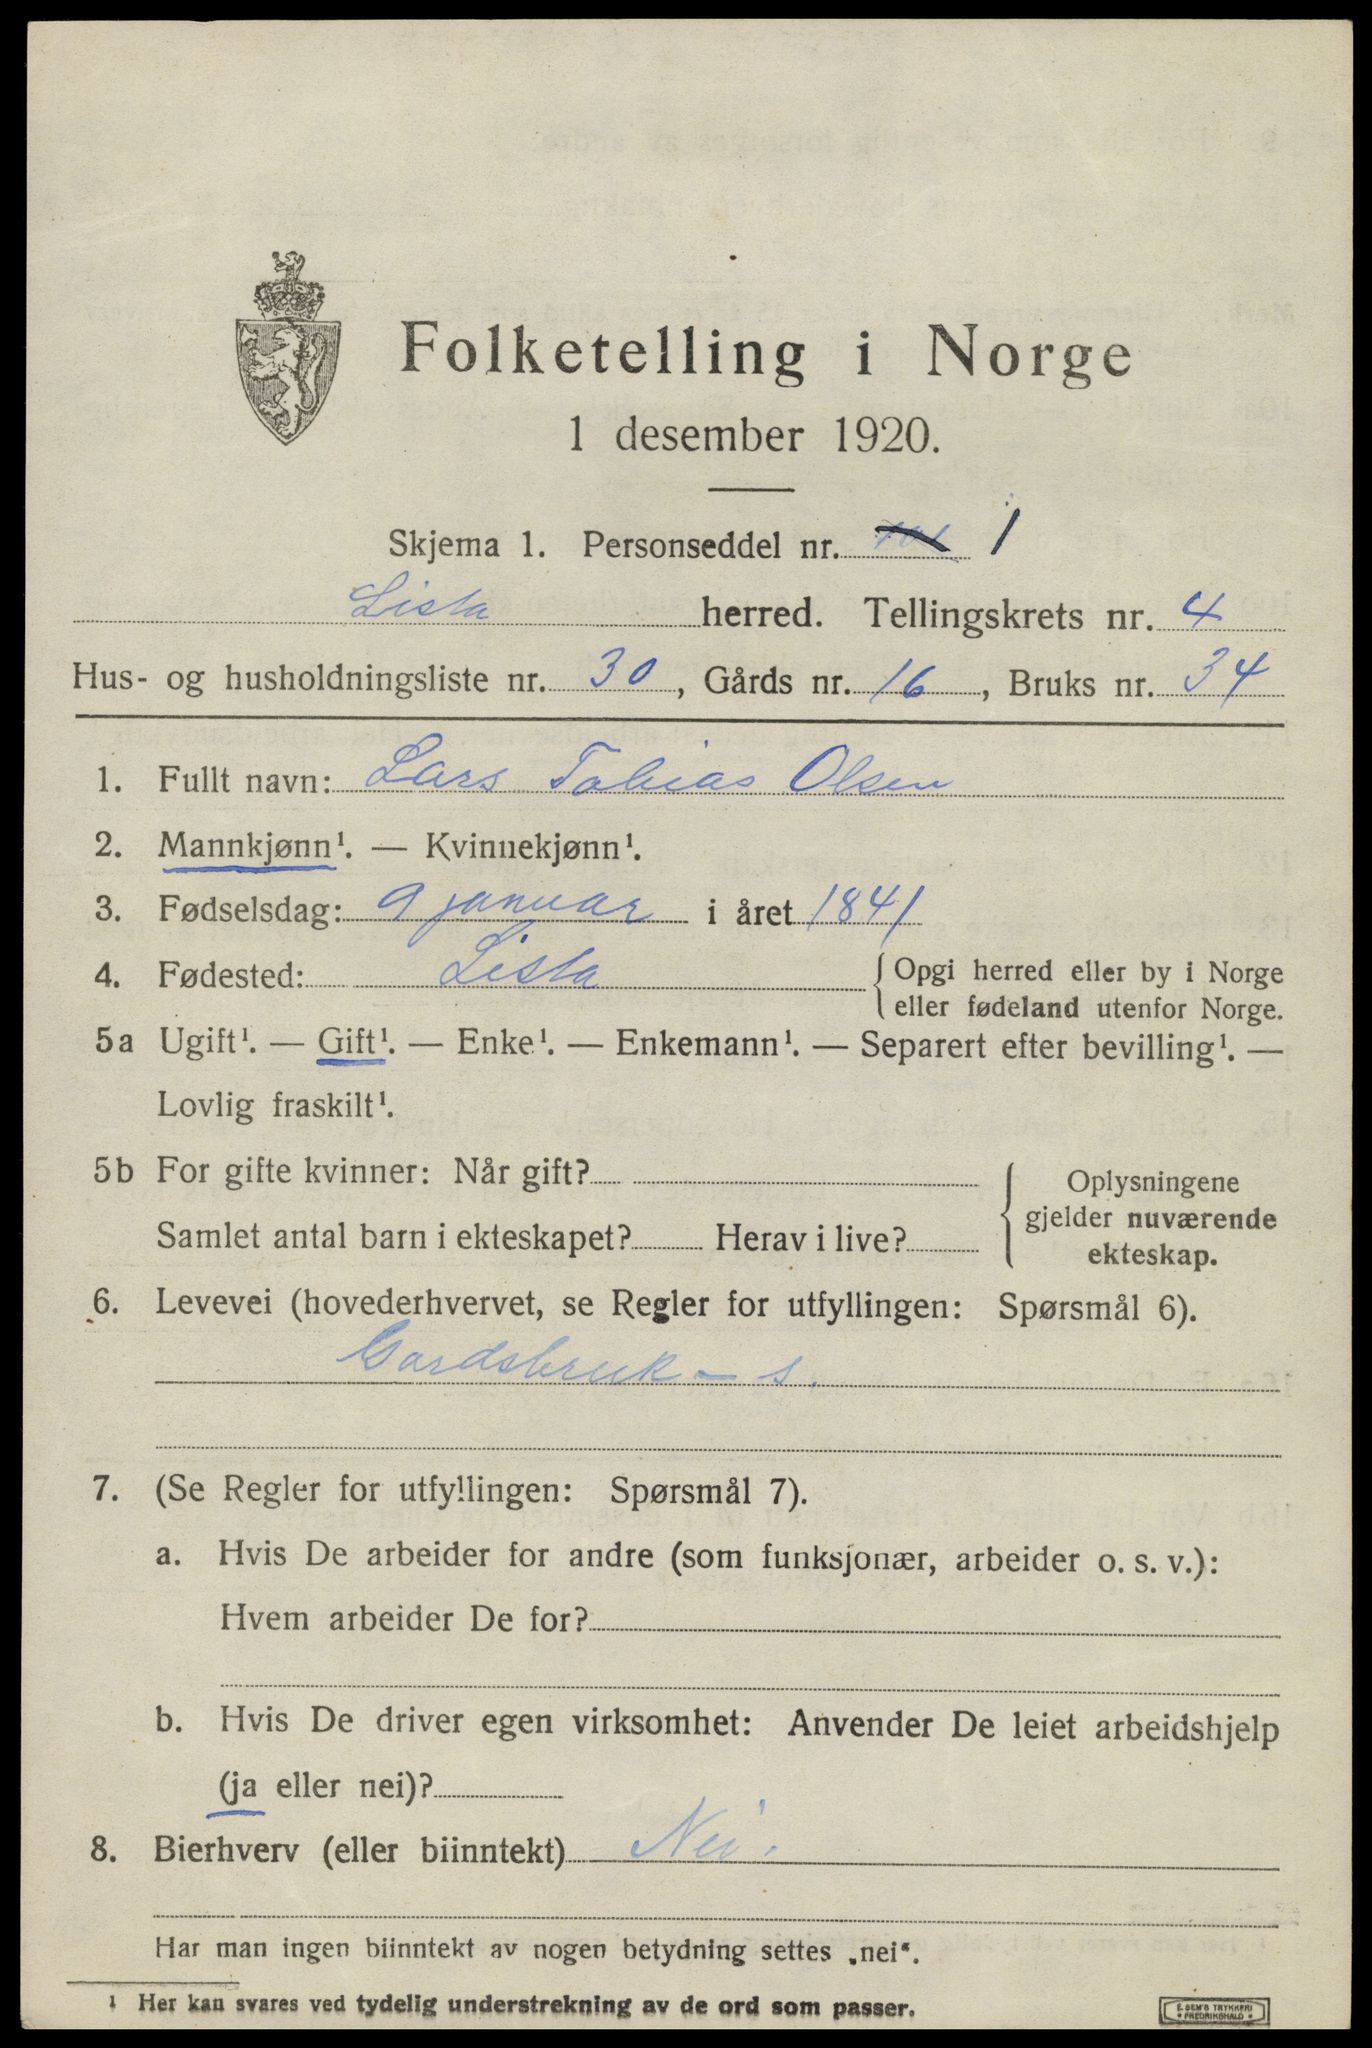 Folketelling i Norge
1 desember 1920.
Skjema 1. Personseddel nr. 1
Lista herred. Tellingskrets nr. 4
Hus- og husholdningsliste nr. 30, Gårds nr. 16, Bruks nr. 34
1. Fullt navn: Lars Tobias Olsen
2. Mannkjønn¹. — Kvinnekjønn¹.
3. Fødselsdag: 9 januar i året 1841
4. Fødested: Lista { Opgi herred eller by i Norge
eller fødeland utenfor Norge.
5a Ugift¹. — Gift¹. — Enke¹. — Enkemann¹. — Separert efter bevilling¹. —
Lovlig fraskilt¹.
5b For gifte kvinner: Når gift?
Samlet antal barn i ekteskapet? Herav i live?
{ Oplysningene
gjelder nuværende
ekteskap.
6. Levevei (hovederhvervet, se Regler for utfyllingen: Spørsmål 6).
Gardsbruk - s.
7. (Se Regler for utfyllingen: Spørsmål 7).
a. Hvis De arbeider for andre (som funksjonær, arbeider o. s. v.):
Hvem arbeider De for?
b. Hvis De driver egen virksomhet: Anvender De leiet arbeidshjelp
(ja eller nei)?
8. Bierhverv (eller biinntekt) Nei.
Har man ingen biinntekt av nogen betydning settes „nei“.
¹ Her kan svares ved tydelig understrekning av de ord som passer.
E. SEM'S TRYKKERI
FREDRIKSHALD